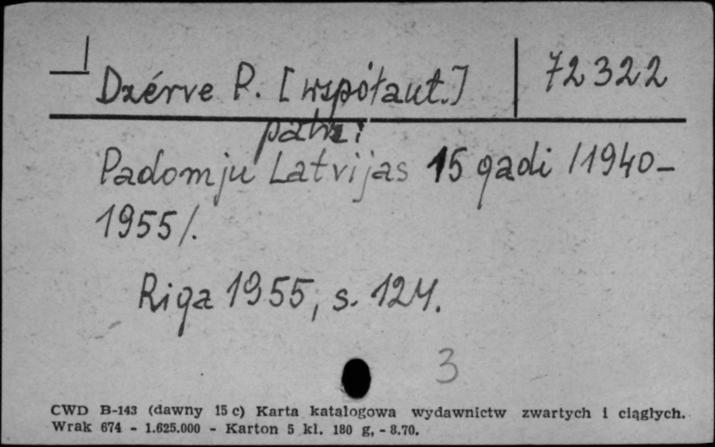 Dzérve P. [współaut.] 72322
patrz:
Padomju Latvijas 15 gadi /1940-
1955/.
Riga 1955, s. 124.
3
CWD B-143 (dawny 15 c) Karta katalogowa wydawnictw zwartych i ciągłych.
Wrak 674 - 1.625.000 - Karton 5 kl. 180 g, - 8.70.